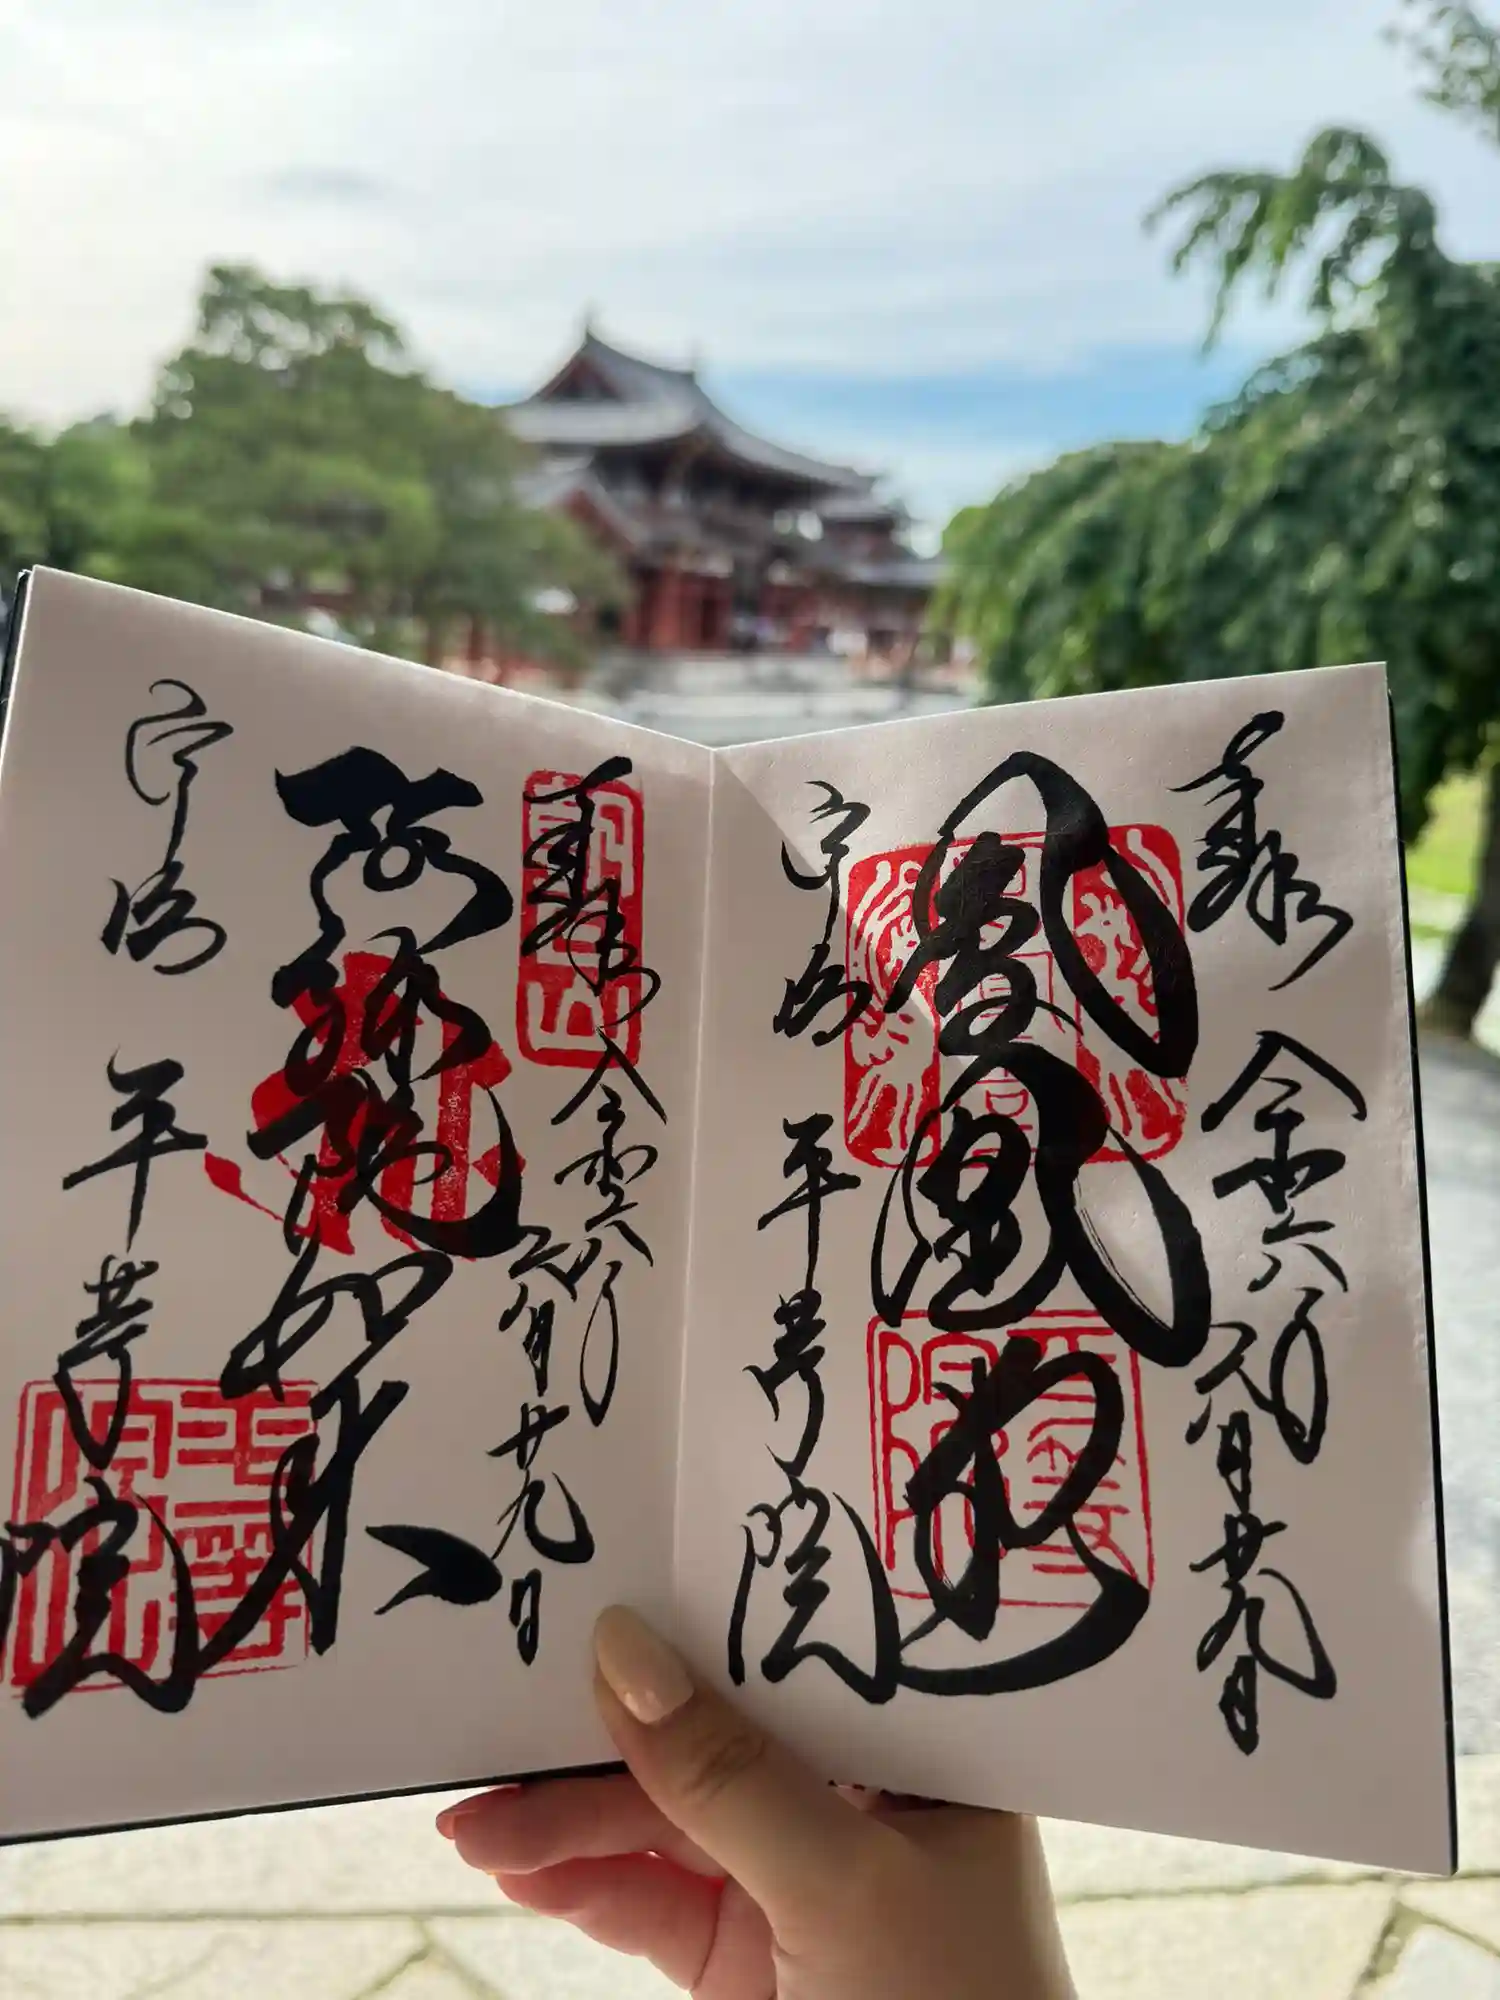 奉拝
令和六年六月廿九日
鳳凰堂
宇治
平等院
奉拝
令和六年六月廿九日
朝日山
阿弥陀如来
宇治
平等院